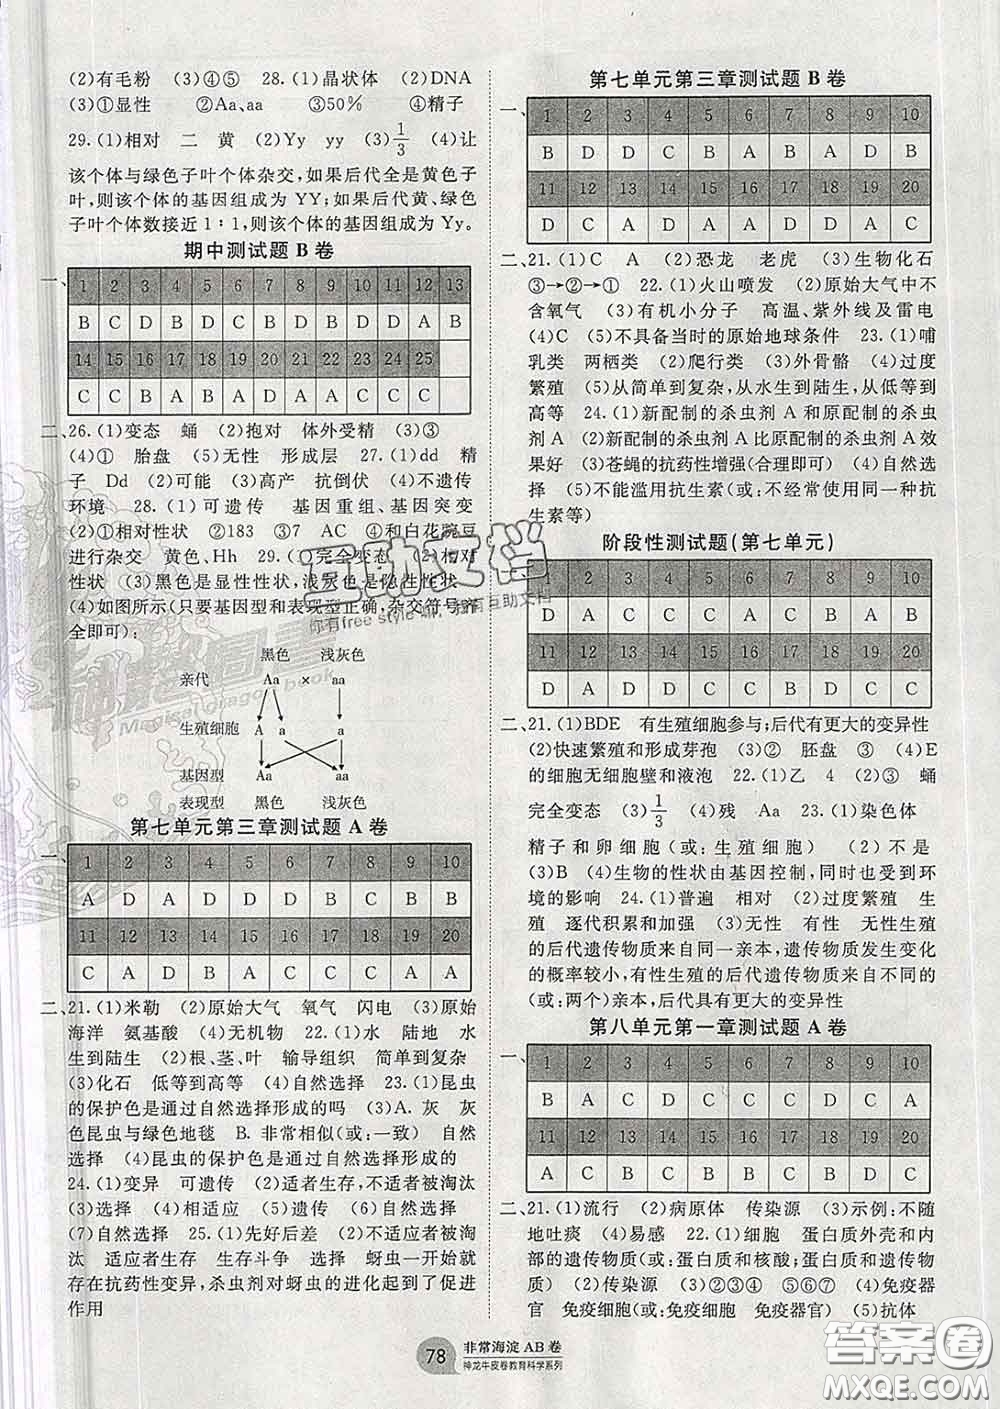 (2)有毛粉 (3)④⑤ 28.(1)晶状体 (2)DNA
(3)①显性 ②Aa、aa ③50% ④精子
29.(1)相对 二 黄 (2)Yy yy (3)1/3 (4)让
该个体与绿色子叶个体杂交,如果后代全是黄色子
叶,则该个体的基因组成为 YY;如果后代黄、绿色
子叶个体数接近 1∶1,则该个体的基因组成为 Yy。
期中测试题 B 卷
一、 1 2 3 4 5 6 7 8 9 10 11 12 13
B C D B D C B D B D D A B
14 15 16 17 18 19 20 21 22 23 24 25
C C B A B A D A A C C C
二、26.(1)变态 蛹 (2)抱对 体外受精 (3)③
(4)① 胎盘 (5)无性 形成层 27.(1)dd 精
子 Dd (2)可能 (3)高产 抗倒伏 (4)不遗传
环境 28.(1)可遗传 基因重组、基因突变
(2)①相对性状 ②183 ③7 AC ④和白花豌豆
进行杂交 黄色、Hh 29.(1)完全变态 (2)相对
性状 (3)黑色是显性性状,浅灰色是隐性性状
(4)如图所示(只要基因型和表现型正确,杂交符号齐
全即可):
黑色 浅灰色
亲代 Aa × aa
生殖细胞 A a a
基因型 Aa aa
表现型 黑色 浅灰色
第七单元第三章测试题 A 卷
一、 1 2 3 4 5 6 7 8 9 10
A D A D D B C B B B
11 12 13 14 15 16 17 18 19 20
C A D B A C C C A A
二、21.(1)米勒 (2)原始大气 氧气 闪电 (3)原始
海洋 氨基酸 (4)无机物 22.(1)水 陆地 水
生到陆生 (2)根、茎、叶 输导组织 简单到复杂
(3)化石 低等到高等 (4)自然选择 23.(1)昆虫
的保护色是通过自然选择形成的吗 (3)A. 灰 灰
色昆虫与绿色地毯 B. 非常相似(或:一致) 自然
选择 (4)昆虫的保护色是通过自然选择形成的
24.(1)变异 可遗传 (2)适者生存,不适者被淘汰
(3)选择 (4)相适应 (5)变异 (6)自然选择
(7)自然选择 25.(1)先好后差 (2)不适应者被淘
汰 适应者生存 生存斗争 选择 蚜虫一开始就
存在抗药性变异,杀虫剂对蚜虫的进化起到了促进
作用
第七单元第三章测试题 B 卷
一、 1 2 3 4 5 6 7 8 9 10
B D D C B A B A D B
11 12 13 14 15 16 17 18 19 20
D C A D A A D D A C
二、21.(1)C A (2)恐龙 老虎 (3)生物化石
③→②→① 22.(1)火山喷发 (2)原始大气中不
含氧气 (3)有机小分子 高温、紫外线及雷电
(4)C (5)不具备当时的原始地球条件 23.(1)哺
乳类 两栖类 (2)爬行类 (3)外骨骼 (4)过度
繁殖 (5)从简单到复杂,从水生到陆生,从低等到
高等 24.(1)新配制的杀虫剂 A 和原配制的杀虫
剂 A (2)新配制的杀虫剂 A 比原配制的杀虫剂 A 效
果好 (3)苍蝇的抗药性增强(合理即可) (4)自然选
择 (5)不能滥用抗生素(或:不经常使用同一种抗
生素等)
阶段性测试题(第七单元)
1 2 3 4 5 6 7 8 9 10
D A C C C A B C A D
11 12 13 14 15 16 17 18 19 20
D A D D D A D A C C
二、21.(1)BDE 有生殖细胞参与;后代有更大的变异性
(2)快速繁殖和形成芽孢 (3)② 胚盘 ③ (4)E
的细胞无细胞壁和液泡 22.(1)乙 4 (2)③ 蛹
完全变态 (3)1/3 (4)残 Aa 23.(1)染色体
精子和卵细胞(或:生殖细胞) (2)不是
(3)B (4)生物的性状由基因控制,同时也受到环
境的影响 24.(1)普遍 相对 (2)过度繁殖 生
殖 逐代积累和加强 (3)无性 有性 无性生殖
的后代遗传物质来自同一亲本,遗传物质发生变化
的概率较小,有性生殖的后代遗传物质来自不同的
(或:两个)亲本,后代具有更大的变异性
第八单元第一章测试题 A 卷
一、 1 2 3 4 5 6 7 8 9 10
B A C D C C C D C A
11 12 13 14 15 16 17 18 19 20
A C B C B C C B D C
二、21.(1)流行 (2)病原体 传染源 (3)示例:不随
地吐痰 (4)易感 22.(1)细胞 蛋白质外壳和内
部的遗传物质(或:蛋白质和核酸;蛋白质和遗传物
质) (2)传染源 (3)①②③④ ⑤⑥⑦ (4)免疫器
官 免疫细胞(或:免疫细胞 免疫器官) (5)抗体
78 非常海淀 AB 卷
神龙牛皮卷教育科学系列
答案圈
MXQE.COM